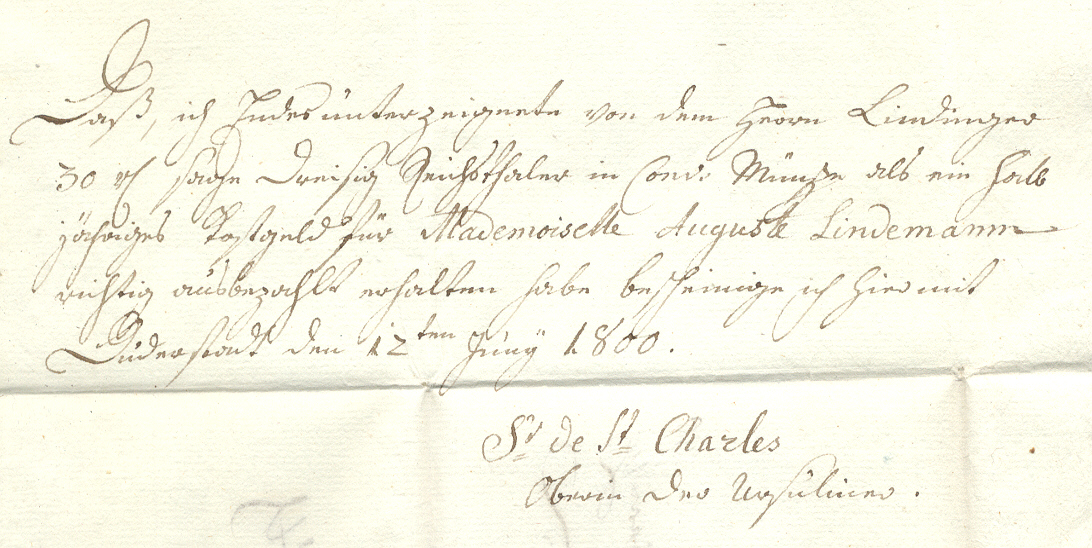 Daß, ich Endesunterzeignete von dem Herrn Lindinger
30 rh sage Dreisig Reichsthaler in Conv: Münze als ein halb
jähriges Kostgeld für Mademoiselle Auguste Lindemann
richtig ausbezahlt erhalten habe bescheinige ich hiermit
Duderstadt den 12ten Juny 1800.
Sr de St Charles
Oberin der Ursuliner.